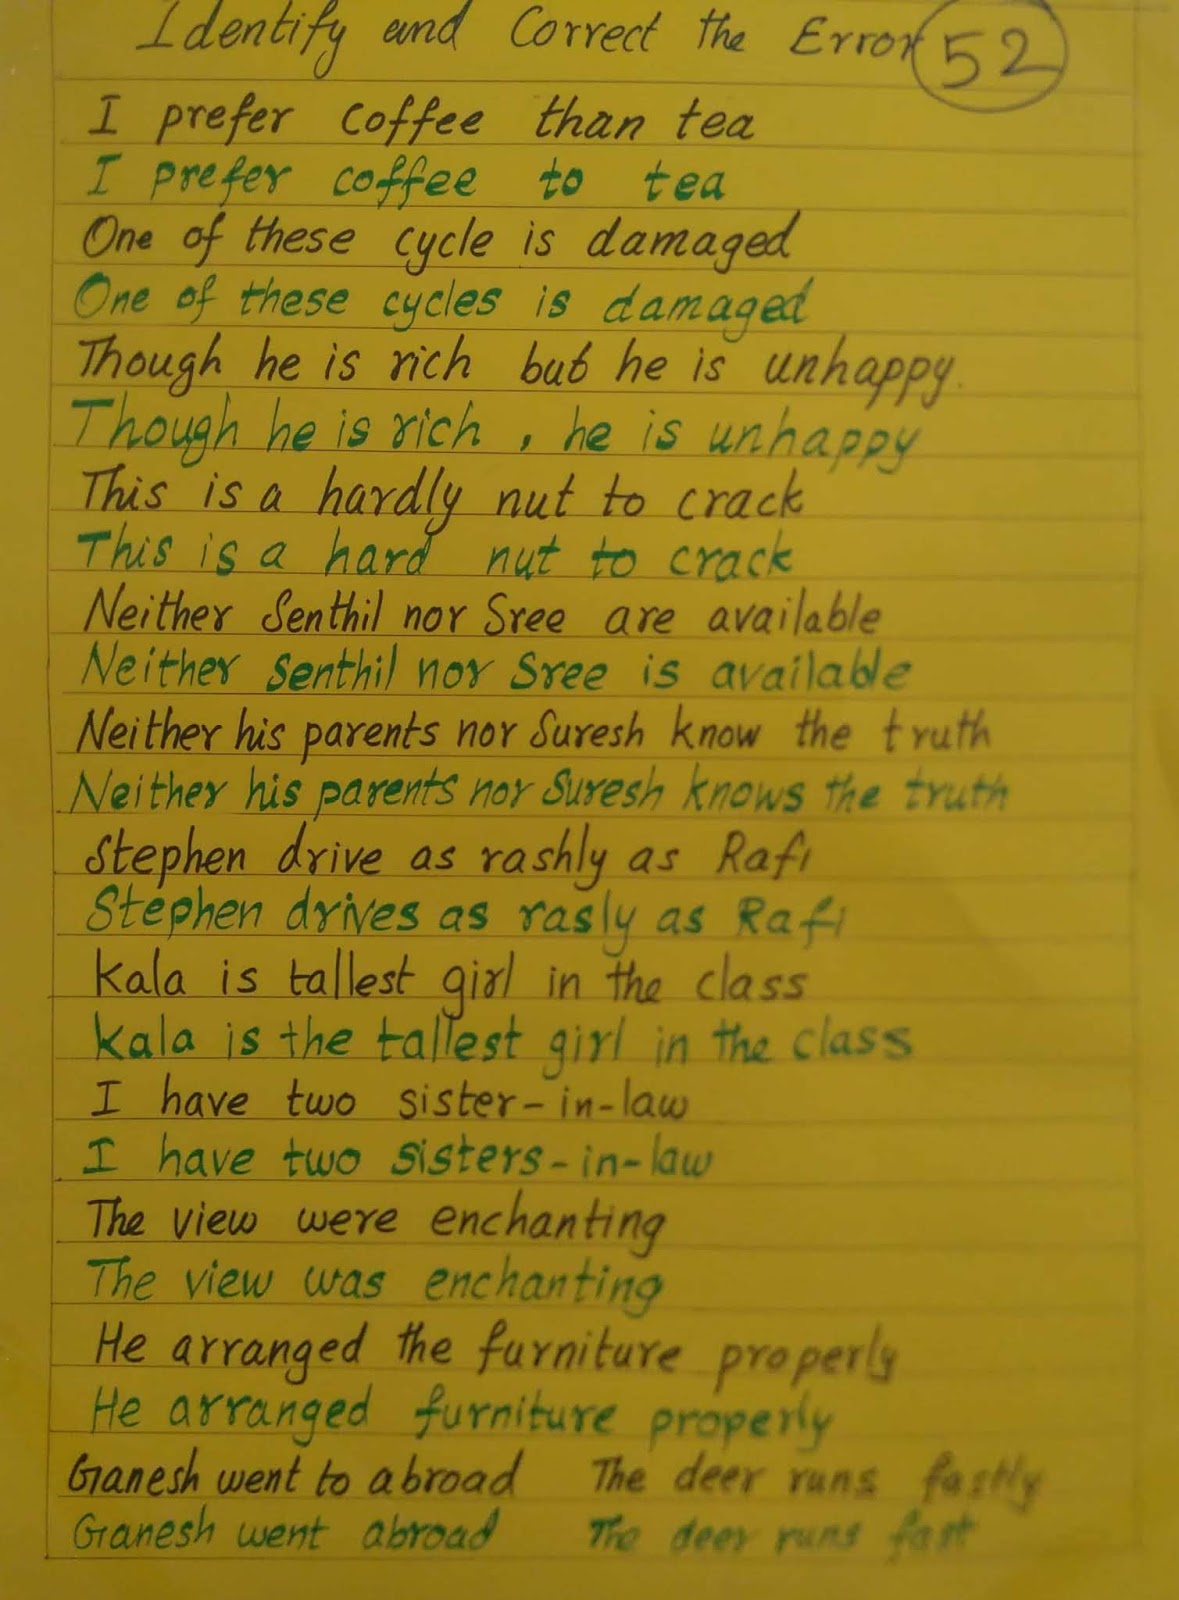 Identify and Correct the Error 52
I prefer coffee than tea
I prefer coffee to tea
One of these cycle is damaged
One of these cycles is damaged
Though he is rich but he is unhappy.
Though he is rich, he is unhappy
This is a hardly nut to crack
This is a hard nut to crack
Neither Senthil nor Sree are available
Neither Senthil nor Sree is available
Neither his parents nor Suresh know the truth
Neither his parents nor Suresh knows the truth
Stephen drive as rashly as Rafi
Stephen drives as rasly as Rafi
Kala is tallest girl in the class
Kala is the tallest girl in the class
I have two sister-in-law
I have two sisters-in-law
The view were enchanting
The view was enchanting
He arranged the furniture properly
He arranged furniture properly
Ganesh went to abroad The deer runs fastly
Ganesh went abroad The deer runs fast